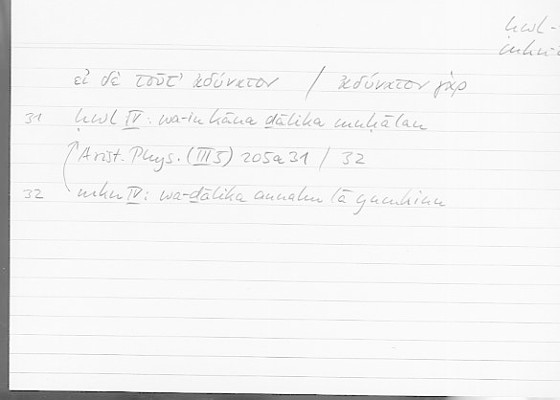 ḥwl
mkn
εἰ δὲ τοῦτ' ἀδύνατον / ἀδύνατον γὰρ
31 ḥwl IV: wa-in kāna ḏālika muḥālan
Arist. Phys. (III 5) 205a31 / 32
32 mkn IV: wa-ḏālika annahu lā yumkinu